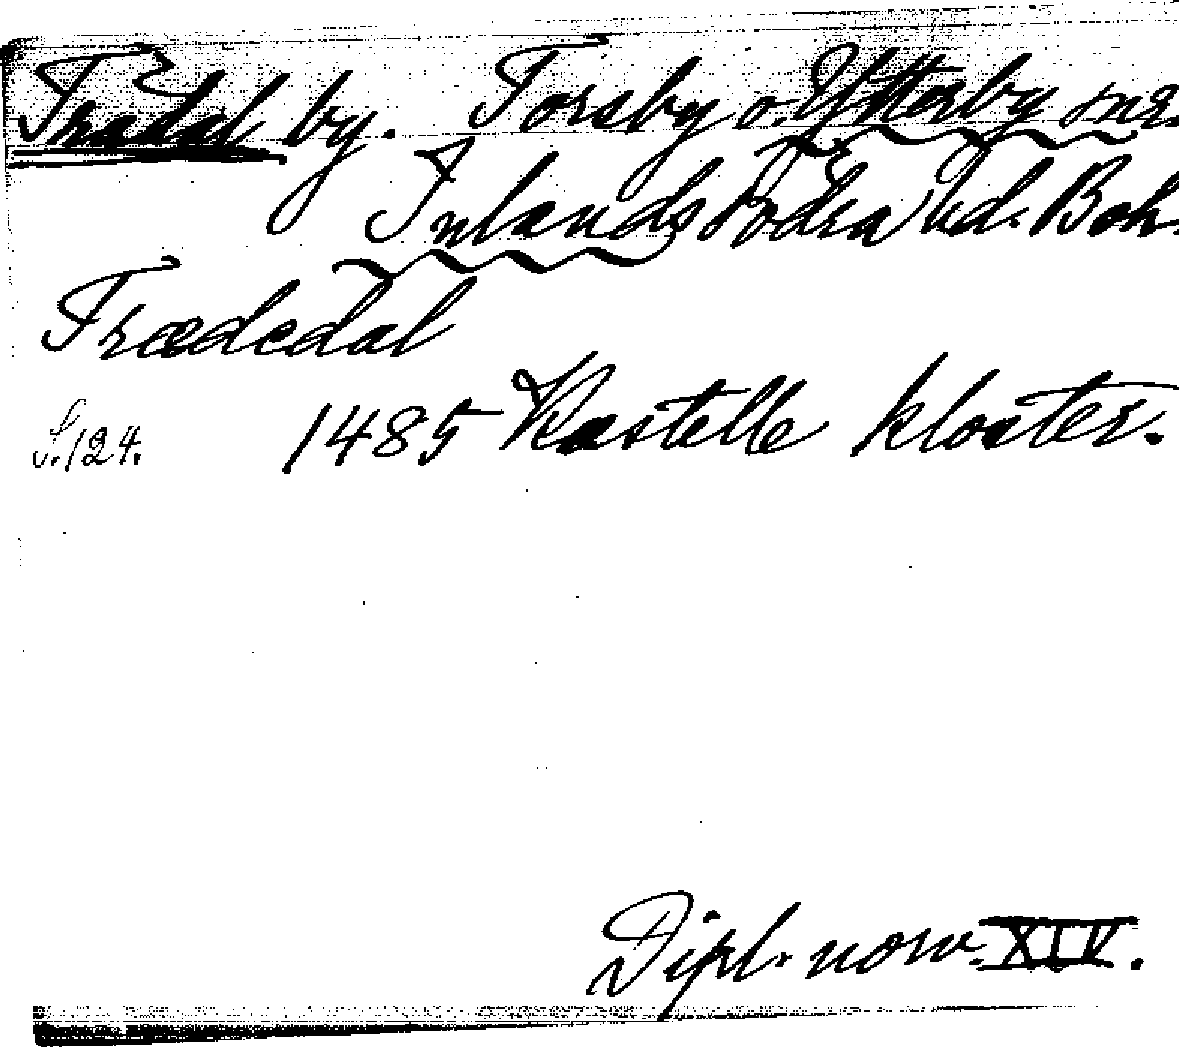 Tradal by. Torsby o. Ytterby snr.
Inlands Södra hd. Boh.
Træddedal
S. 124. 1485 Kastelle kloster.
Dipl. norv. XIV.